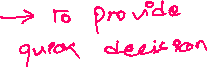 → To provide
quick decision